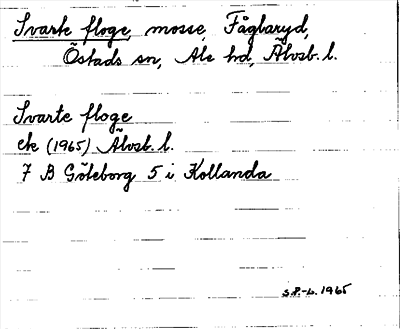 Svarte floge, mosse, Fågbaryd,
Östads sn, Ale hd, Älvsb. l.
Svarte floge
ek (1965) Älvsb. l.
7 B Göteborg 5 i Kollanda
1965